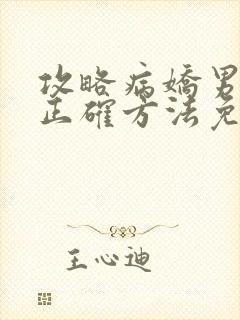 攻略病嬌男
正確方法免
王心迪